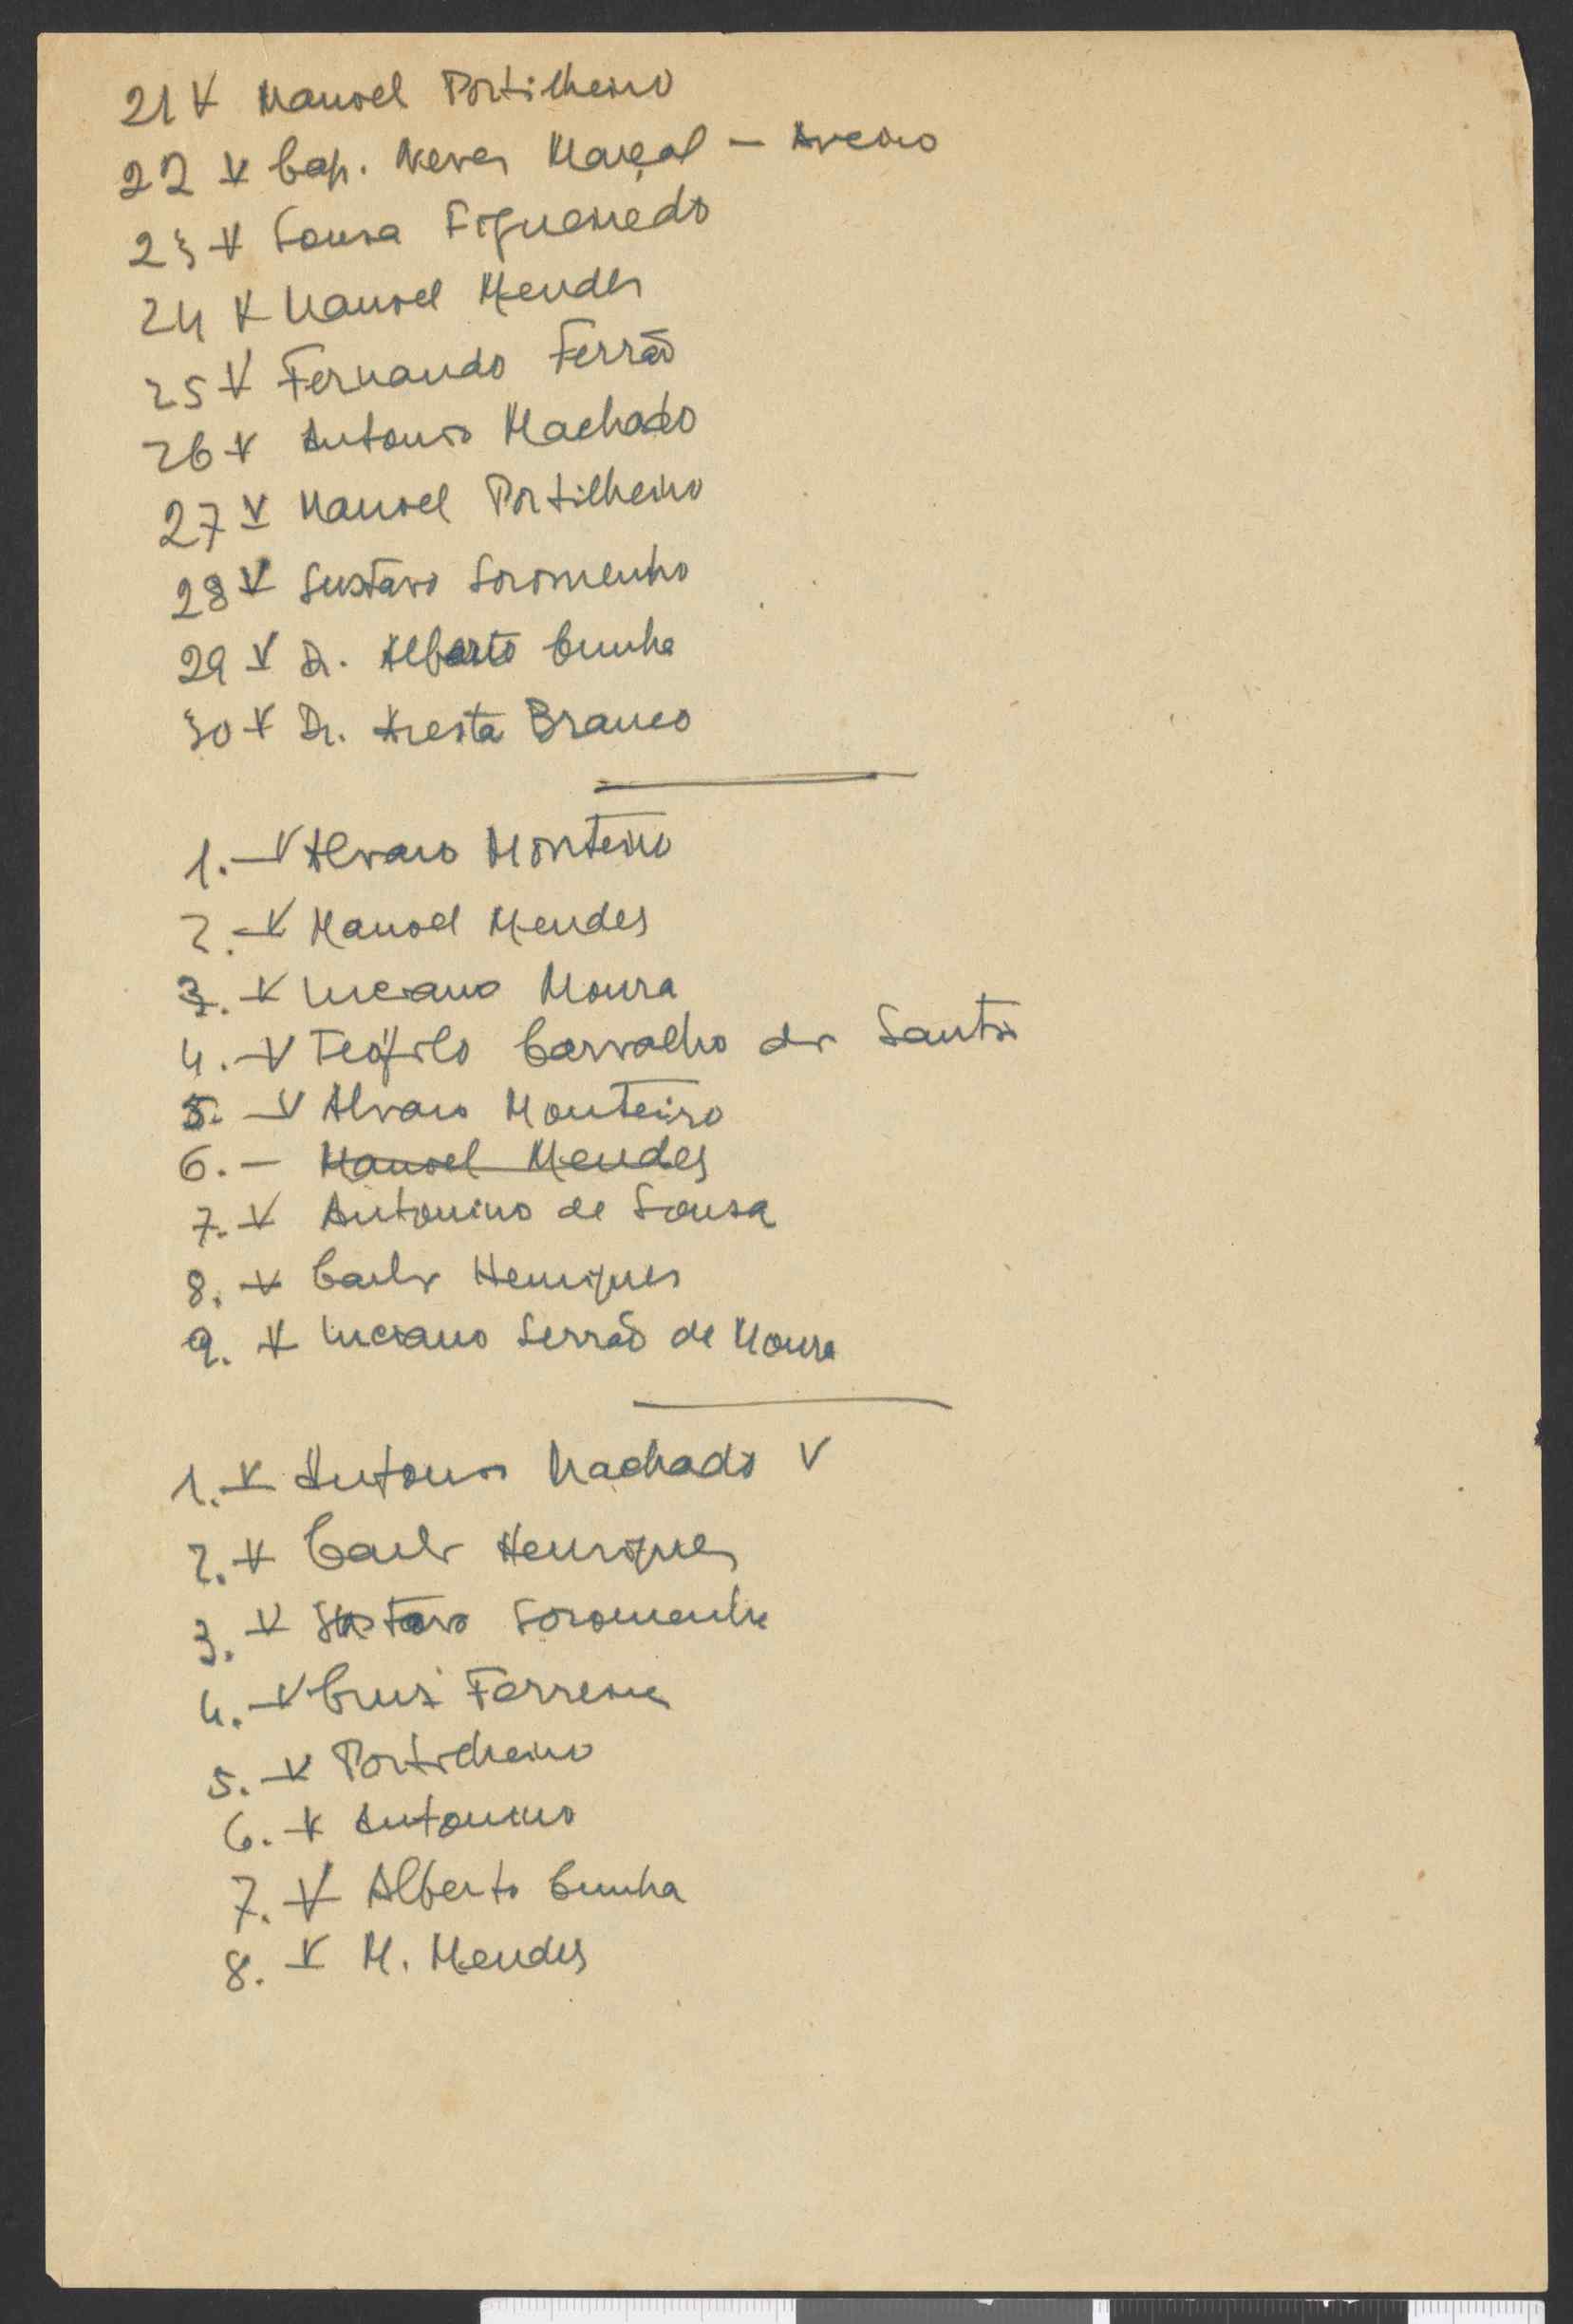 21 V Manoel Portilheiro
22 V Cap. Neves Marçal - Aveiro
23 V Sousa Figueiredo
24 V Manoel Mendes
25 V Fernando Ferrão
26 V Antonio Machado
27 V Manoel Portilheiro
28 V Gustavo Soromenho
29 V Dr. Alberto Cunha
30 V Dr. Aresta Branco
1. - V Alvaro Monteiro
2. - V Manoel Mendes
3. - V Luciano Moura
4. - V Teófilo Carvalho dos Santos
5. - V Alvaro Monteiro
6. - Manoel Mendes
7. - V Antonino de Sousa
8. - V Carlos Henriques
9. V Luciano Serrão de Moura
1. - V Antonio Machado V
2. - V Carlos Henriques
3. - V Gustavo Soromenho
4. - V Cruz Ferreira
5. - V Portilheiro
6. - V Antonino
7. - V Alberto Cunha
8. - V M. Mendes